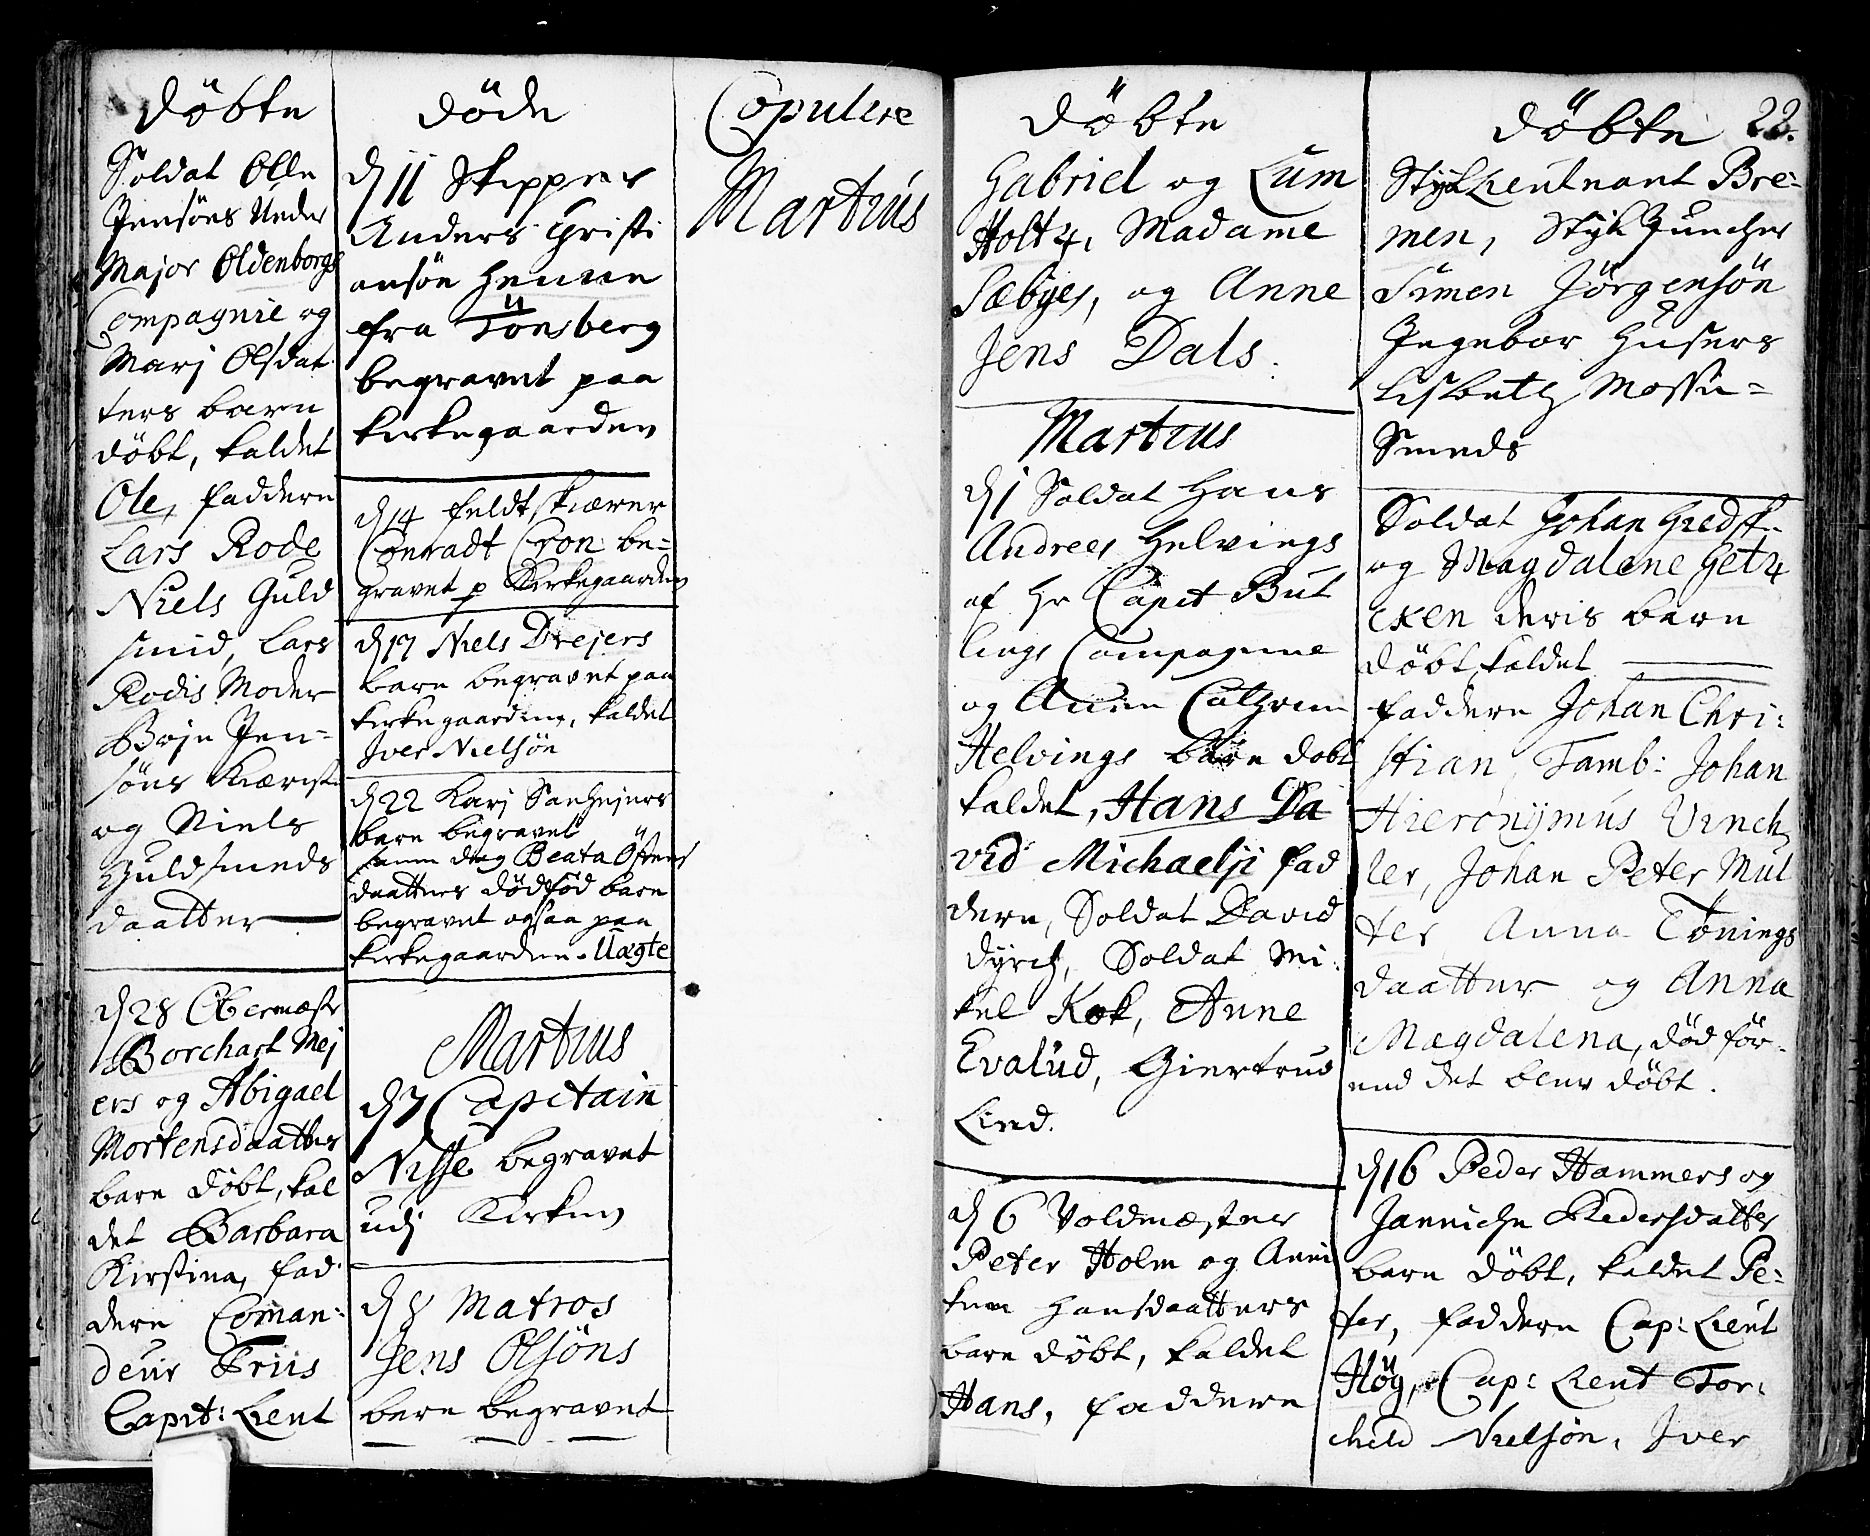 Döbte
Soldat Olle
Jensöns Under
Major Oldenborgs
Compagnie og
Marj Olsdat
ters barn
döbt, kaldet
Ole, faddere
Lars Rode
Niels Guld
smid, Lars
Rodis Moder
Boje Jen=
söns Kiærist
og Niels
Guldsmeds
daatter
d 28
Borchart Mej
ers og Abigael
Mortensdaatters
barn döbt, kal
det Barbara
Kirstina, fad
dere Coman:
deur Friis
Capit: Lieut
Döde
d 11 Skipper
Anders Christi
ansön Henne
fra Tönsberg
begravet paa
kirkegaarden
d 14 feldtskiærer
Conradt Cron be=
gravet p Kirkegaarden
d 17 Niels Drejers
barn begravet paa
kirkegaarden, kaldet
Iver Nielsön
d 22 Karj
barn begravet
samme dag Beata Östens
daatters dödföd barn
begravet ogsaa paa
kirkegaarden. Uægte
Martius
d 7 Capitain
Nisse begravet
udj Kirken
d 8 Matros
Jens Olsöns
barn begravet
Copulere
Martius
Döbte
Gabriel og Lum
Holtz, Madame
Sæbyes, og Anne
Jens Dals.
Martius
d 1 Soldat Hans
Andreas Helvings
af Hr Capit But
lings Compagnie
og Anne Cathrin
Helvings barn dobt
kaldet, Hans Da
vid Michaelji fad
dere, Soldat David
Dyrch, Soldat Mi:
kel Kok, Anne
Evalud, Giertrud
Lind.
d 6 Voldmæster
Peter Holm og Anni
ken Hansdaatters
barn döbt, kaldet
Hans, faddere
Döbte 22.
Stykleutnant Bre=
men, Styk Juncher
Simen Jörgensön
Ingebor Husers
Lisbeth Mossie=
Smeds
Soldat Johan
og Magdalene Getz
exen deris barn
döbt, kaldet ———
faddere Johan Chri:
stian Tamb: Johan
Hieronymus Vinch
ler, Johan Peter Mul
ter Anna Tønings
daatter og Anna
Magdalena, död för=
end det blev döbt.
d 16 Peder Hammers og
Janniche Pedersdatters
barn döbt, kaldet Pe=
ter, faddere Cap: Lieut
Hög, Cap: Lieut Tor:
child Nielsön, Iver